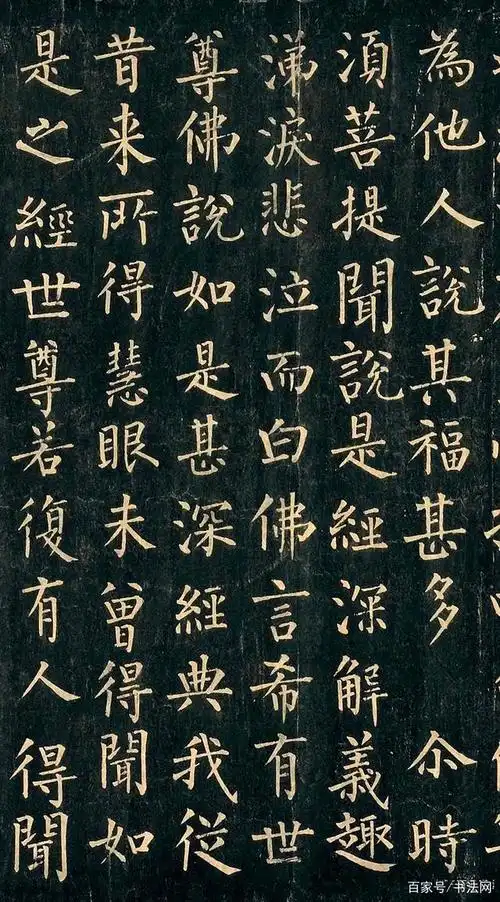 為他人說其福甚多 尒時
湏菩提聞說是經深解義趣
涕淚悲泣而白佛言希有世
尊佛說如是甚深經典我從
昔来所得慧眼未曾得聞如
是之經世尊若復有人得聞
百家号/书法网